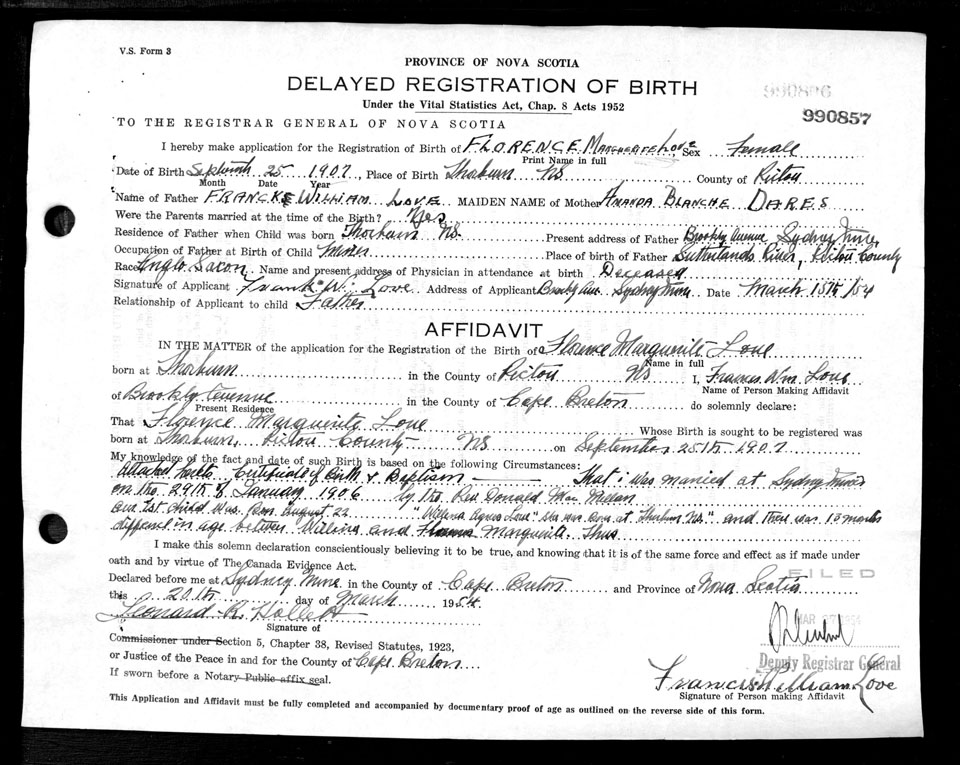 V.S. Form 3
PROVINCE OF NOVA SCOTIA
DELAYED REGISTRATION OF BIRTH
990857
Under the Vital Statistics Act, Chap. 8 Acts 1952
TO THE REGISTRAR GENERAL OF NOVA SCOTIA
I hereby make application for the Registration of Birth of FLORENCE MARGUERITE LOVE Sex Female
Print Name in full
Date of Birth 25 1907, Place of Birth Thorburn NS County of Pictou
Month Date Year
Name of Father WILLIAM LOVE MAIDEN NAME of Mother AMANDA BLANCHE DARES
Were the Parents married at the time of the Birth? Yes
Residence of Father when Child was born Thorburn NS. Present address of Father Avenue Sydney Mines
Occupation of Father at Birth of Child Miner Place of birth of Father Sutherlands River, Pictou County
Race Anglo Saxon. Name and present address of Physician in attendance at birth Deceased
Signature of Applicant Frank W. Love Address of Applicant Ave Sydney Mines Date March 15th/54
Relationship of Applicant to child Father
AFFIDAVIT
IN THE MATTER of the application for the Registration of the Birth of Florence Marguerite Love
Name in full
born at Thorburn in the County of Pictou NS I, Francis Wm. Love
Name of Person Making Affidavit
of in the County of Cape Breton do solemnly declare:
Present Residence
That Florence Marguerite Love Whose Birth is sought to be registered was
born at Thorburn, Pictou County NS on September 25th 1907
My knowledge of the fact and date of such Birth is based on the following Circumstances:
Attached Certificate of Birth & Baptism — That i was married at Sydney Mines
on the 29th of January 1906 by the Rev Donald Mac
Our 1st child was born August 22 "Agnes Love" she was born at Thorburn NS" and there was 13 months
in age between and Marguerite. Thus
I make this solemn declaration conscientiously believing it to be true, and knowing that it is of the same force and effect as if made under
oath and by virtue of The Canada Evidence Act.
FILED
Declared before me at Sydney Mines in the County of Cape Breton and Province of Nova Scotia
this 20th day of March 1954
Leonard R.
Signature of
Commissioner under Section 5, Chapter 38, Revised Statutes, 1923,
or Justice of the Peace in and for the County of Cape Breton
Deputy Registrar General
If sworn before a Notary Public affix seal.
Francis William Love
Signature of Person making Affidavit
This Application and Affidavit must be fully completed and accompanied by documentary proof of age as outlined on the reverse side of this form.